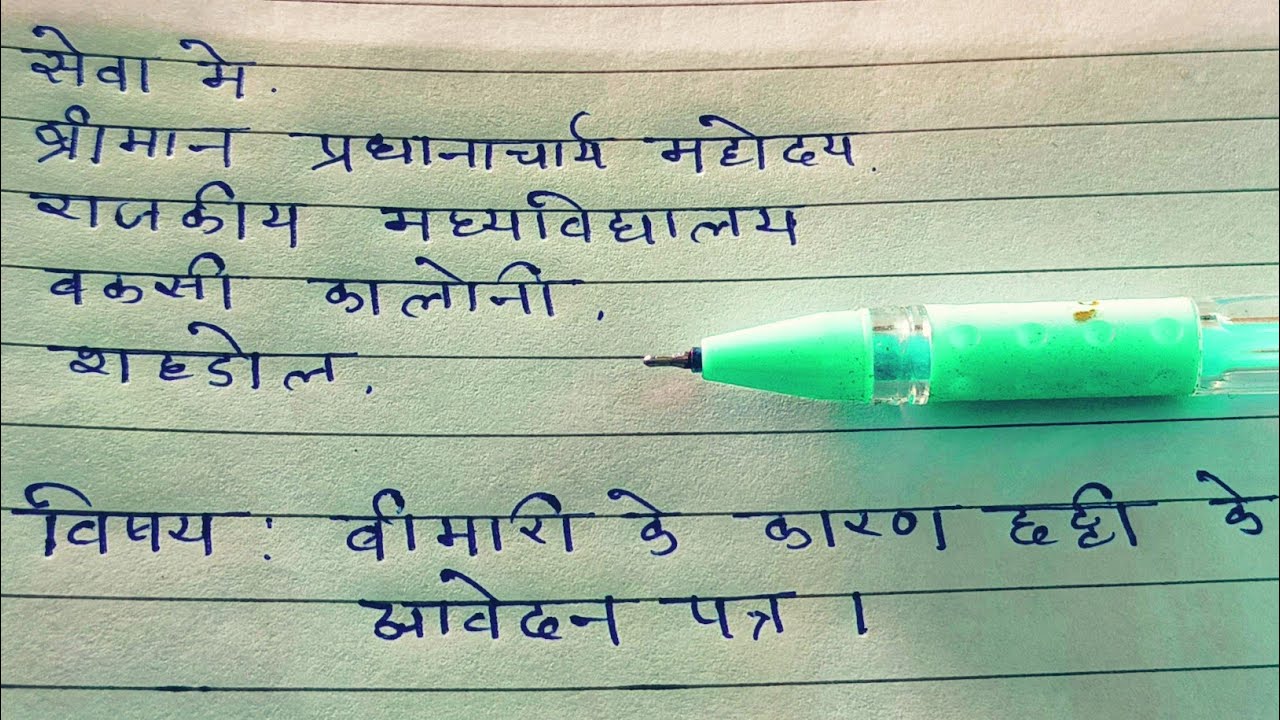 सेवा मे.
श्रीमान प्रधानाचार्य महोदय.
राजकीय मध्यविद्यालय
बकसी कालोनी.
शहडोल.
विषय : बीमारी के कारण छुट्टी के
आवेदन पत्र ।